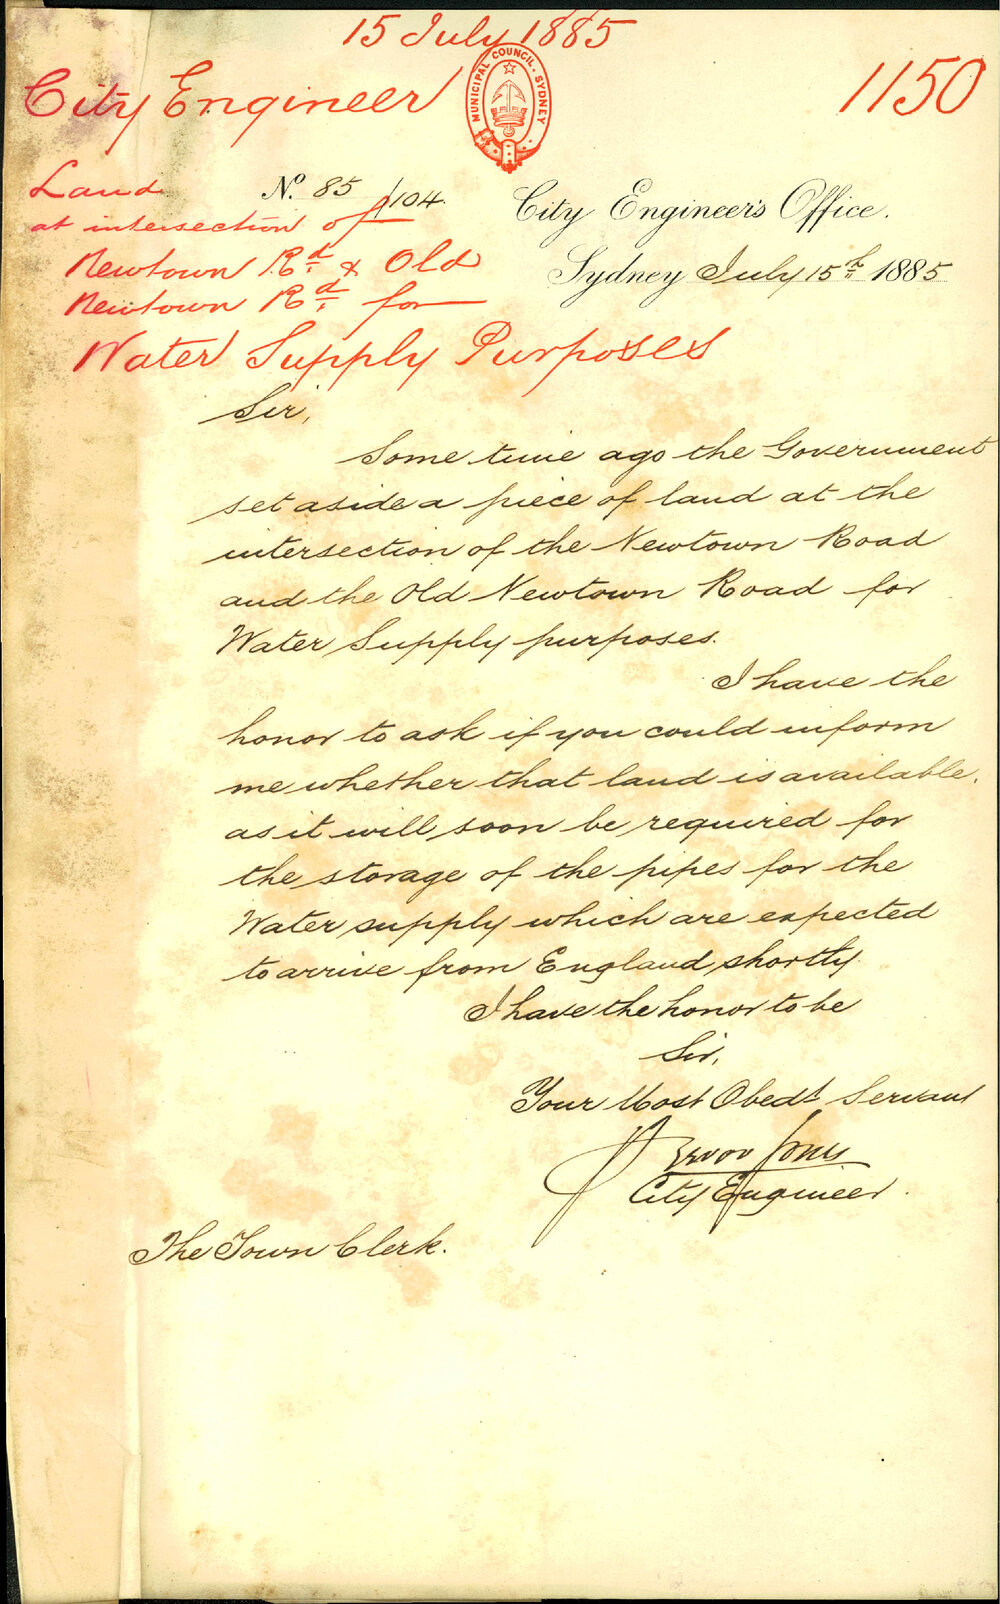 15 July 1885
City Engineer
1150
MUNICIPAL COUNCIL. SYDNEY
Land
at intersection of
Newtown Rd. & Old
Newtown Rd. for
Water Supply Purposes
No. 85/104.
City Engineer's Office.
Sydney July 15th 1885
Sir,
Some time ago the Government
set aside a piece of land at the
intersection of the Newtown Road
and the Old Newtown Road for
Water Supply purposes.
I have the
honor to ask if you could inform
me whether that land is available,
as it will soon be required for
the storage of the pipes for the
Water supply which are expected
to arrive from England shortly.
I have the honor to be
Sir,
Your Most Obedt. Servant
Trevor Jones
City Engineer.
The Town Clerk.